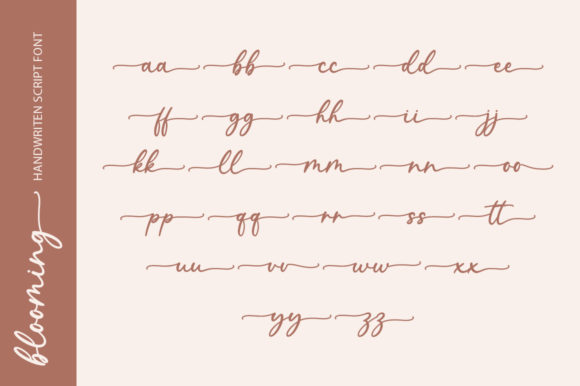 blooming
HANDWRITEN SCRIPT FONT
aa bb cc dd ee
ff gg hh ii jj
kk ll mm nn oo
pp qq rr ss tt
uu vv ww xx
yy zz